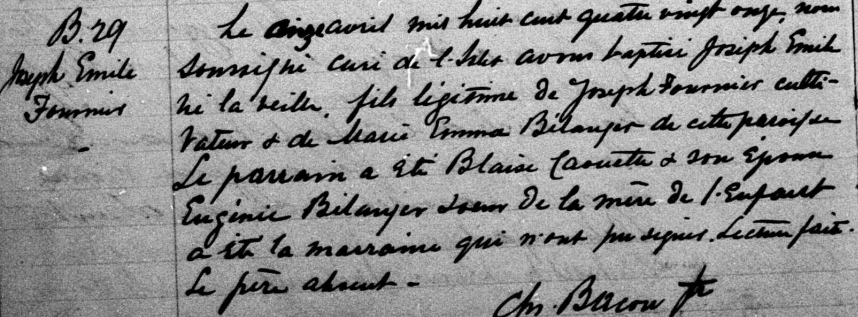 B. 29
Joseph Emile
Fournier
Le onze avril mil huit cent quatre vingt onze, nous
soussigné curé de l'Islet avons baptisé Joseph Emile
né la veille, fils légitime de Joseph Fournier culti-
vateur & de Marie Emma Bélanger de cette paroisse
Le parrain a été Blaise Caouette & son épouse
Eugénie Bélanger soeur de la mère de l'Enfant
a été la marraine qui n'ont pu signer. Lecture faite.
Le père absent -
Chs. Bacon Ptr